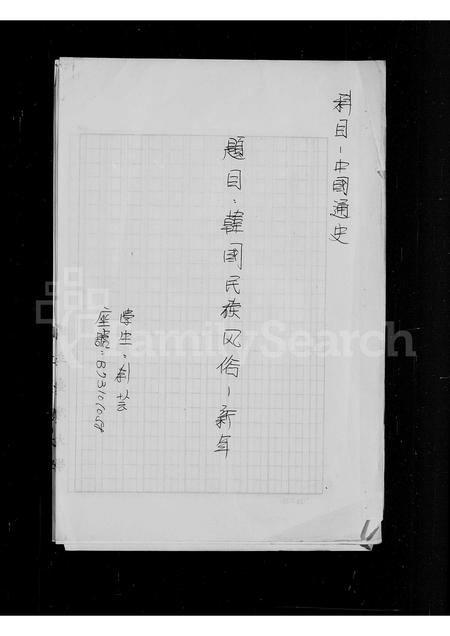 科目-中國通史
題目:韓國民族风俗-新年
學生:
座號:
FamilySearch